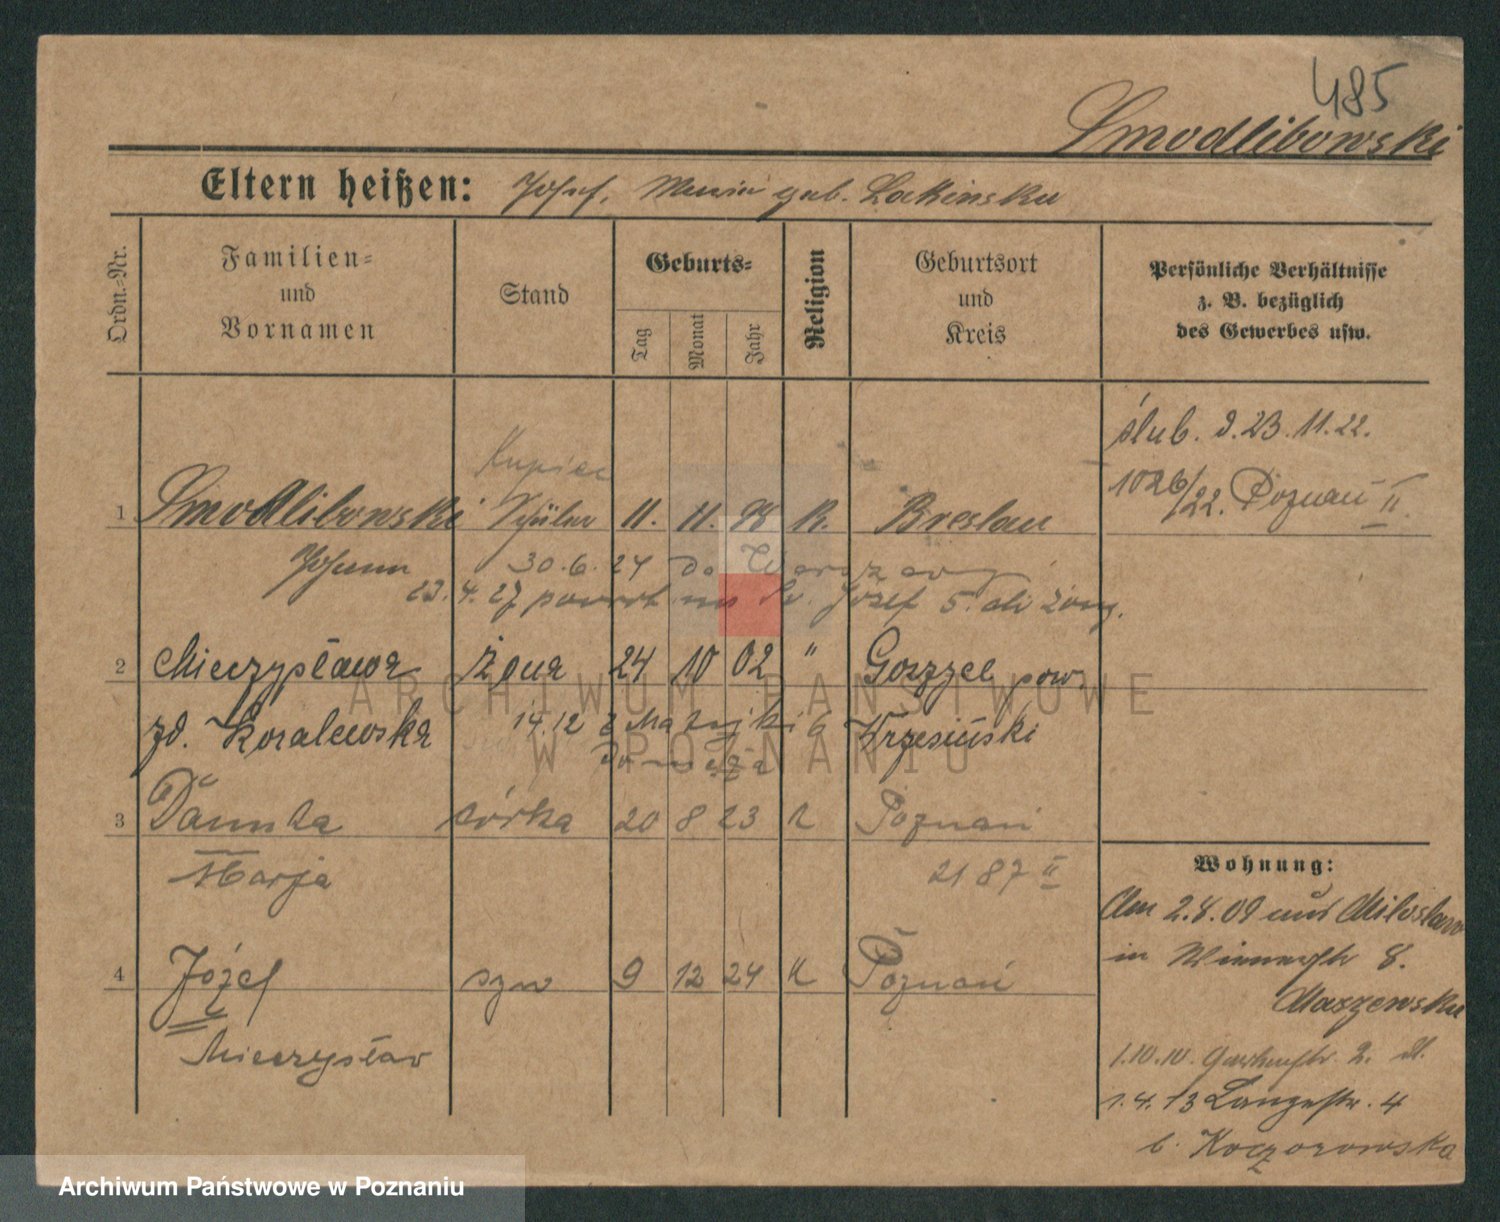 485
Smodlibowski
Eltern heißen: Josef, Maria geb. Lakinska
Ordn.-Nr.
Familien- und Vornamen
Stand
Geburts-
Tag
Monat
Jahr
Religion
Geburtsort und Kreis
Persönliche Verhältnisse z. B. bezüglich des Gewerbes usw.
ślub. d. 23.11.22.
1026/22. Poznań II.
Kupiec
1 Smodlibowski Schüler 11. 11. K. Breslau
Johann 30.6.24 do
23.4.27 powrót Józef 5.
2 Mieczysława żona 24 10 02 " pow
zd. Koralewska 14.12 Wrzesiński
3 Danuta córka 20 8 23 k Poznań
Marja 2187 II
4 Józef syn 9 12 24 k Poznań
Mieczysław
Wohnung:
Am 2.4.09 aus Miloslaw
in 8.
Maszewska
1.10.10. Gartenstr. 2.
1.4.13 Langestr. 4
b. Koczorowska
ARCHIWUM PAŃSTWOWE
W POZNANIU
Archiwum Państwowe w Poznaniu